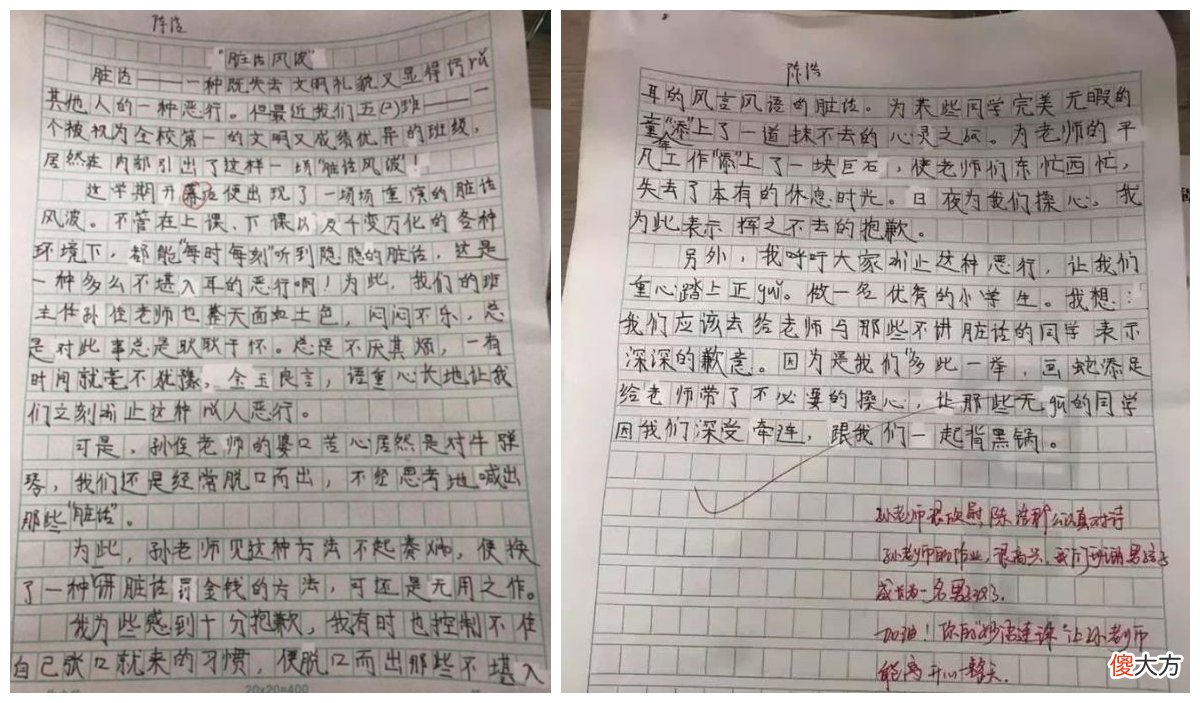 陈浩
"脏话风波"
脏话——一种既失去文明礼貌又显得污rǔ
其他人的一种恶行。但最近我们五(2)班——一
个被视为全校第一的文明又成绩优异的班级,
居然在内部引出了这样一场"脏话风波"!
这学期开幕后便出现了一场场重演的脏话
风波。不管在上课、下课以及千变万化的各种
环境下,都能"每时每刻"听到隐隐的脏话,这是
一种多么不堪入耳的恶行啊!为此,我们的班
主任孙佳老师也整天面如土色,闷闷不乐,总
是对此事总是耿耿于怀。总是不厌其烦,一有
时间就毫不犹豫,金玉良言,语重心长地让我
们立刻制止这种以人恶行。
可是,孙佳老师的婆口苦心居然是对牛弹
琴,我们还是经常脱口而出,不经思考地喊出
那些"脏话"。
为此,孙老师见这种方法不起奏效,便换
了一种"讲脏话罚金钱的方法,可还是无用之作。
我为些感到十分抱歉,我有时也控制不住
自己张口就来的习惯,便脱口而出那些不堪入
20×20=400
陈浩
耳的风言风语的脏话。为某些同学完美无暇的
童年"添"上了一道抹不去的心灵之。为老师的平
凡工作"添"上了一块巨石,使老师们东忙西忙,
失去了本有的休息时光。日夜为我们操心。我
为此表示挥之不去的抱歉。
另外,我呼吁大家制止这种恶行,让我们
重心踏上正guǐ。做一名优秀的小学生。我想:
我们应该去给老师与那些不讲脏话的同学表示
深深的歉意。因为是我们"多此一举,画蛇添足
给老师带了不必要的操心,让那些无gū的同学
因我们深受牵连,跟我们一起背黑锅。
孙老师很欣慰,陈浩那么认真对待
孙老师的作业,很高兴,我们班的男孩子
成长为一名男子汉了.
加油!你的"妙语连珠"让孙老师
能离开心一整天.
傻大方